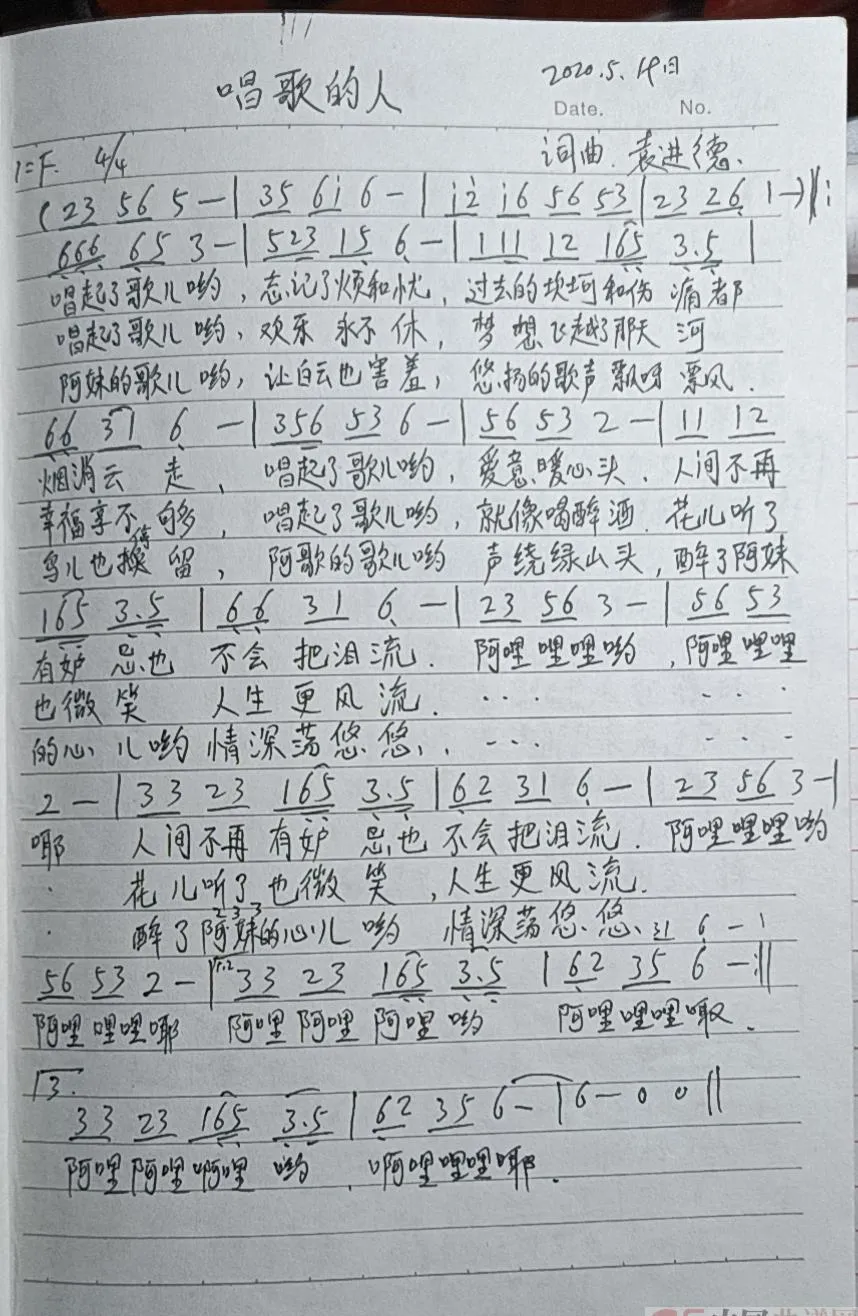 唱歌的人
2020.5.19日
Date. No.
1=F. 4/4 词曲.袁进德.
(23 56 5 — | 35 6i 6 — | i2 i6 56 53 | 23 26 1 —)‖:
666 65 3 — | 523 15 6 — | 111 12 165 3.5 |
唱起了歌儿哟,忘记了烦和忧,过去的坎坷和伤 痛都
唱起了歌儿哟,欢乐 永不 休, 梦 想 飞越了那天 河
阿妹的歌儿哟,让白云也害羞,悠扬的歌声飘呀 漂风.
66 31 6 — | 356 53 6 — | 56 53 2 — | 11 12
烟消云 走、 唱起了歌儿哟,爱意暖心头.人间不再
幸福享不 够, 唱起了歌儿哟,就像喝醉酒.花儿听了
鸟儿也 停 留, 阿歌的歌儿哟 声绕绿山头,醉了阿妹
165 3.5 | 66 31 6 — | 23 56 3 — | 56 53
有妒 忌也 不会 把泪流. 阿哩哩哩哟,阿哩哩哩
也微 笑 人生 更风 流. ... ...
的心 儿哟 情深荡悠悠、. ... ...
2 — | 33 23 165 3.5 | 62 31 6 — | 23 56 3 — |
耶 人间不再 有妒 忌也 不会把泪流. 阿哩哩哩哟
. 花儿听了也微 笑,人生更风流.
2 3 3
. 醉了阿妹的心儿 哟 情深荡悠悠、31 6 — |
56 53 2 — | 1.2 33 23 165 3.5 | 62 35 6 — :‖
阿哩哩哩耶 阿哩阿哩阿哩 哟 阿哩哩哩耶.
3.
33 23 165 3.5 | 62 35 6 — | 6 — 0 0 ‖
阿哩阿哩啊哩 哟 . 啊哩哩哩耶.